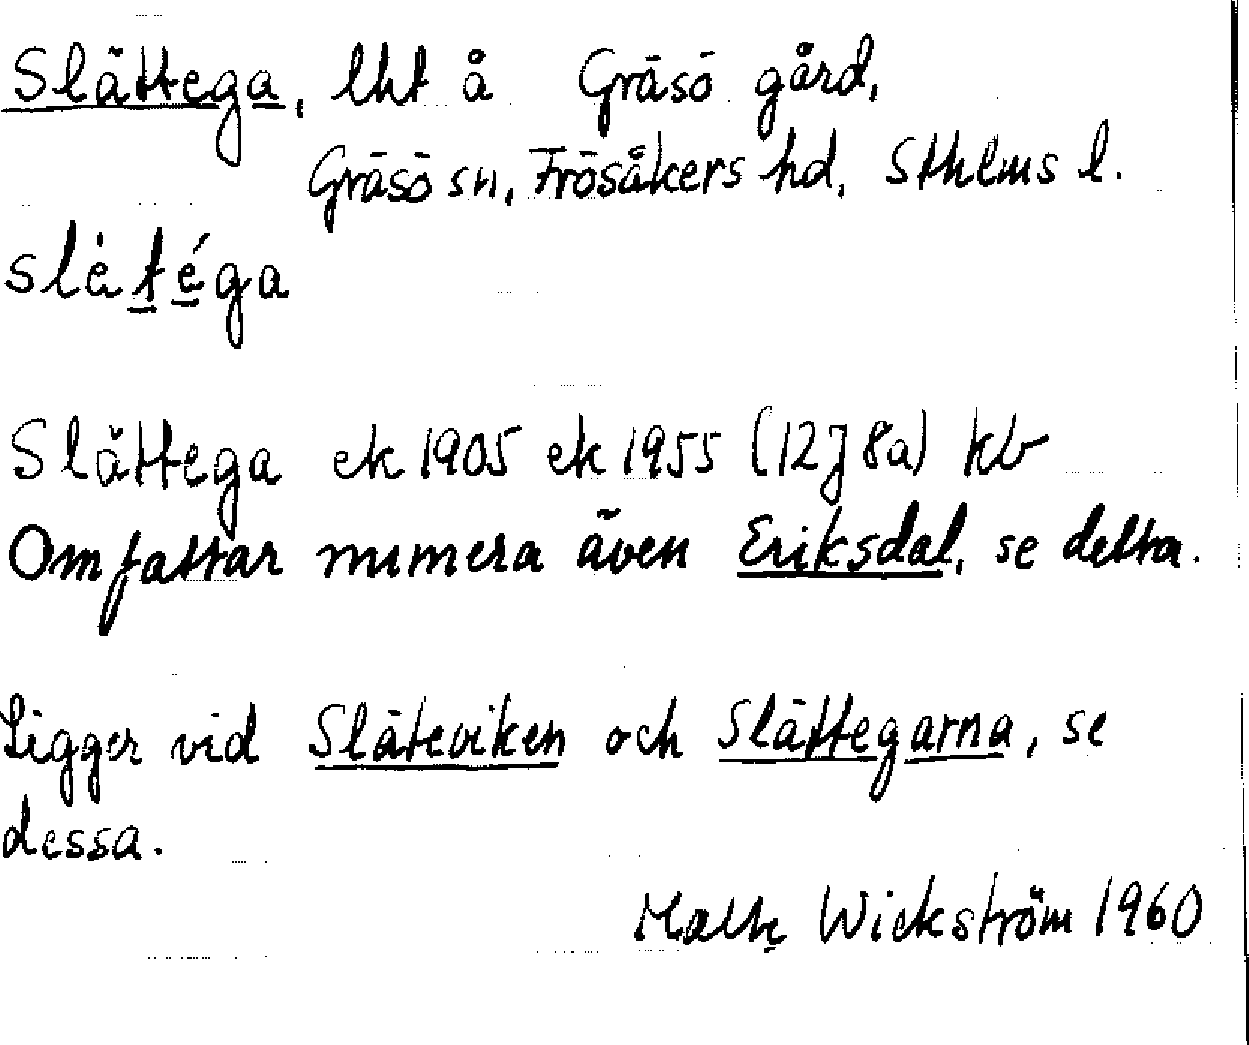 Slättega, lht å Gräsö gård,
Gräsö sn, Frösåkers hd, Sthlms l.
slètéga
Slättega ek 1905 ek 1955 (12J 8a) kb
Omfattar numera även Eriksdal, se detta.
Ligger vid Släteviken och Slättegarna, se
dessa.
Wickström 1960